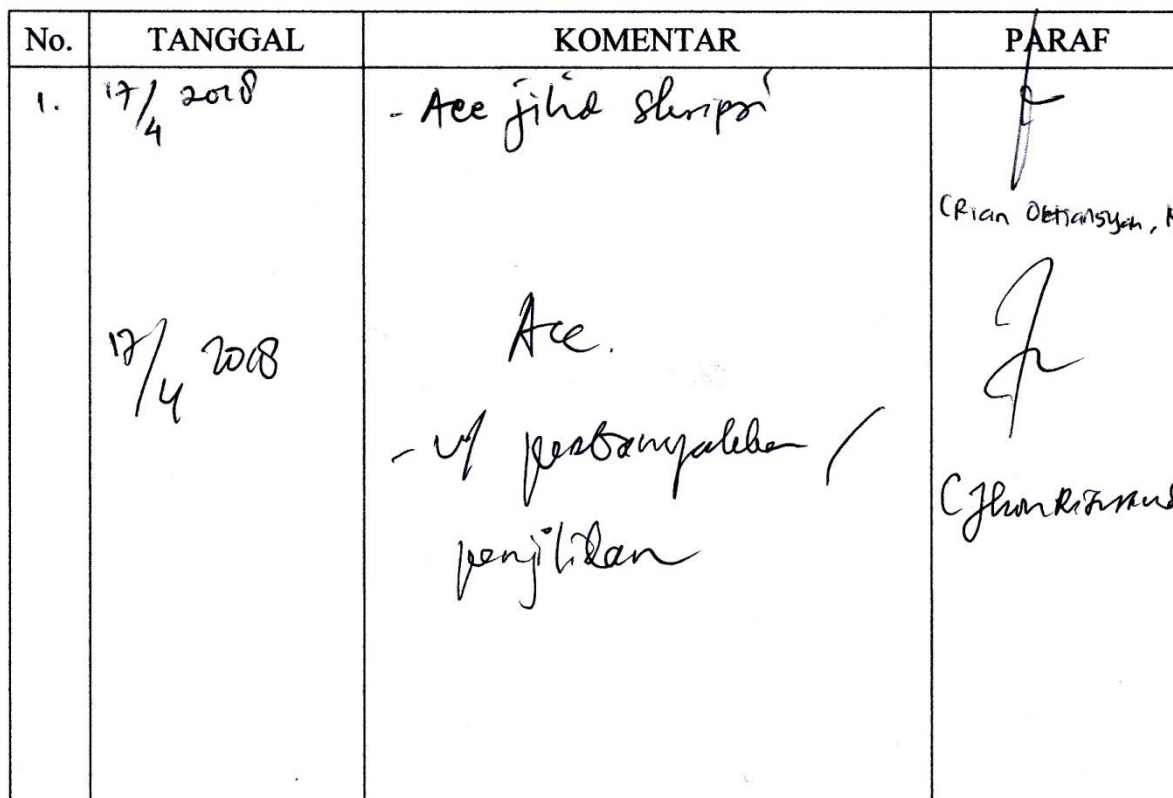 No. TANGGAL KOMENTAR PARAF
1. 17/4 2018 - Acc jilid skripsi
(Rian Oktiansyah,
17/4 2018 Acc.
- u/ perbanyakkan /
(Jhon
penjilidan